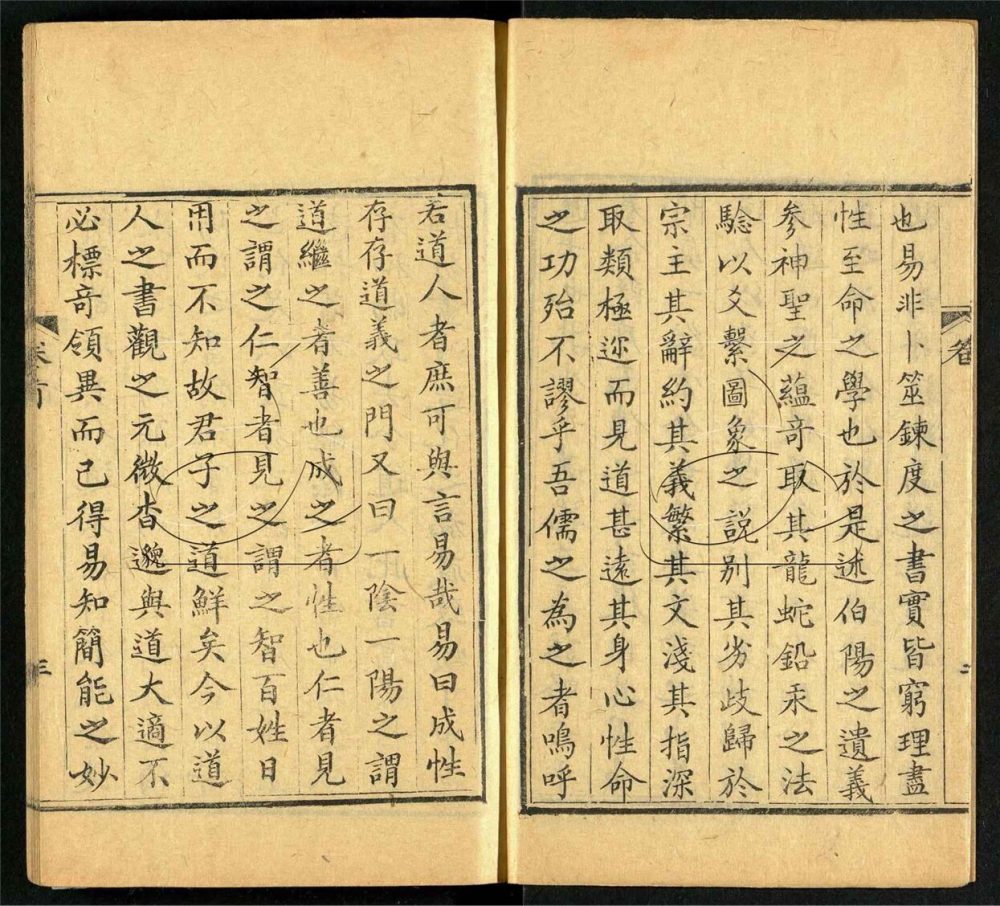 也易非卜筮鍊度之書實皆窮理盡
性至命之學也於是述伯陽之遺義
參神聖之蘊奇取其龍蛇鉛汞之法
驗以爻繫圖象之說別其旁歧歸於
宗主其辭約其義繁其文淺其指深
取類極迩而見道甚遠其身心性命
之功殆不謬乎吾儒之為之者嗚呼
若道人者庶可與言易哉易曰成性
存存道義之門又曰一陰一陽之謂
道繼之者善也成之者性也仁者見
之謂之仁智者見之謂之智百姓日
用而不知故君子之道鮮矣今以道
人之書觀之元微杳邈與道大適不
必標奇領異而已得易知簡能之妙
卷首
三